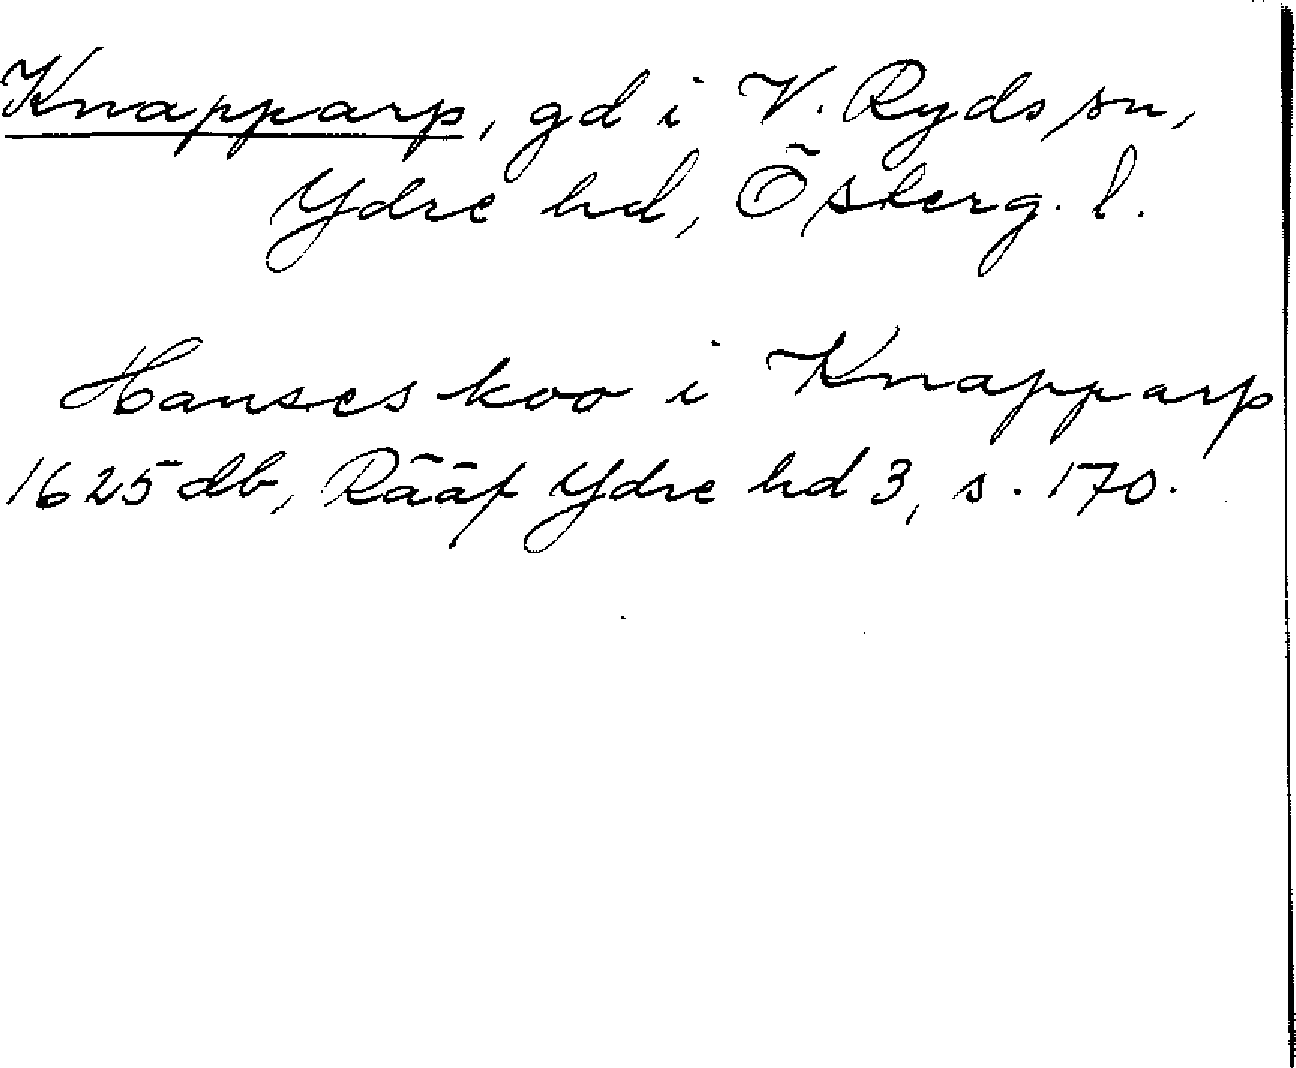 Knapparp, gd i V. Ryds sn,
Ydre hd, Österg. l.
Hanses koo i Knapparp
1625 db, Rääf Ydre hd 3, s. 170.